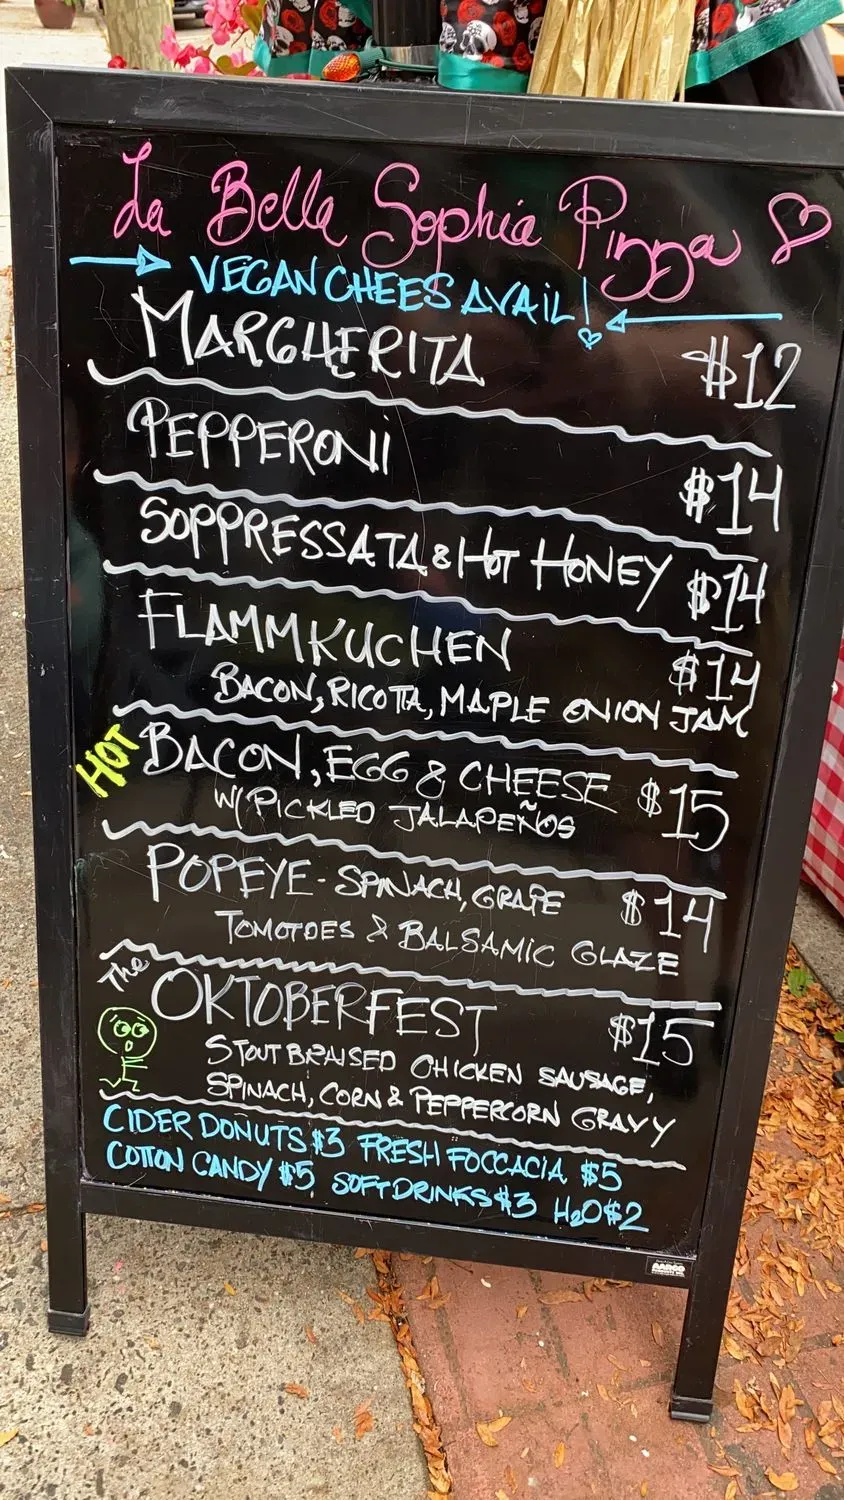 La Bella Sophia Pizza
VEGAN CHEES AVAIL!
MARGHERITA $12
PEPPERONI $14
SOPPRESSATA & HOT HONEY $14
FLAMMKUCHEN $14
BACON, RICOTTA, MAPLE ONION JAM
HOT BACON, EGG & CHEESE $15
W/ PICKLED JALAPEÑOS
POPEYE - SPINACH, GRAPE $14
TOMOTOES & BALSAMIC GLAZE
The OKTOBERFEST $15
STOUT BRAISED CHICKEN SAUSAGE,
SPINACH, CORN & PEPPERCORN GRAVY
CIDER DONUTS $3 FRESH FOCCACIA $5
COTTON CANDY $5 SOFT DRINKS $3 H2O $2